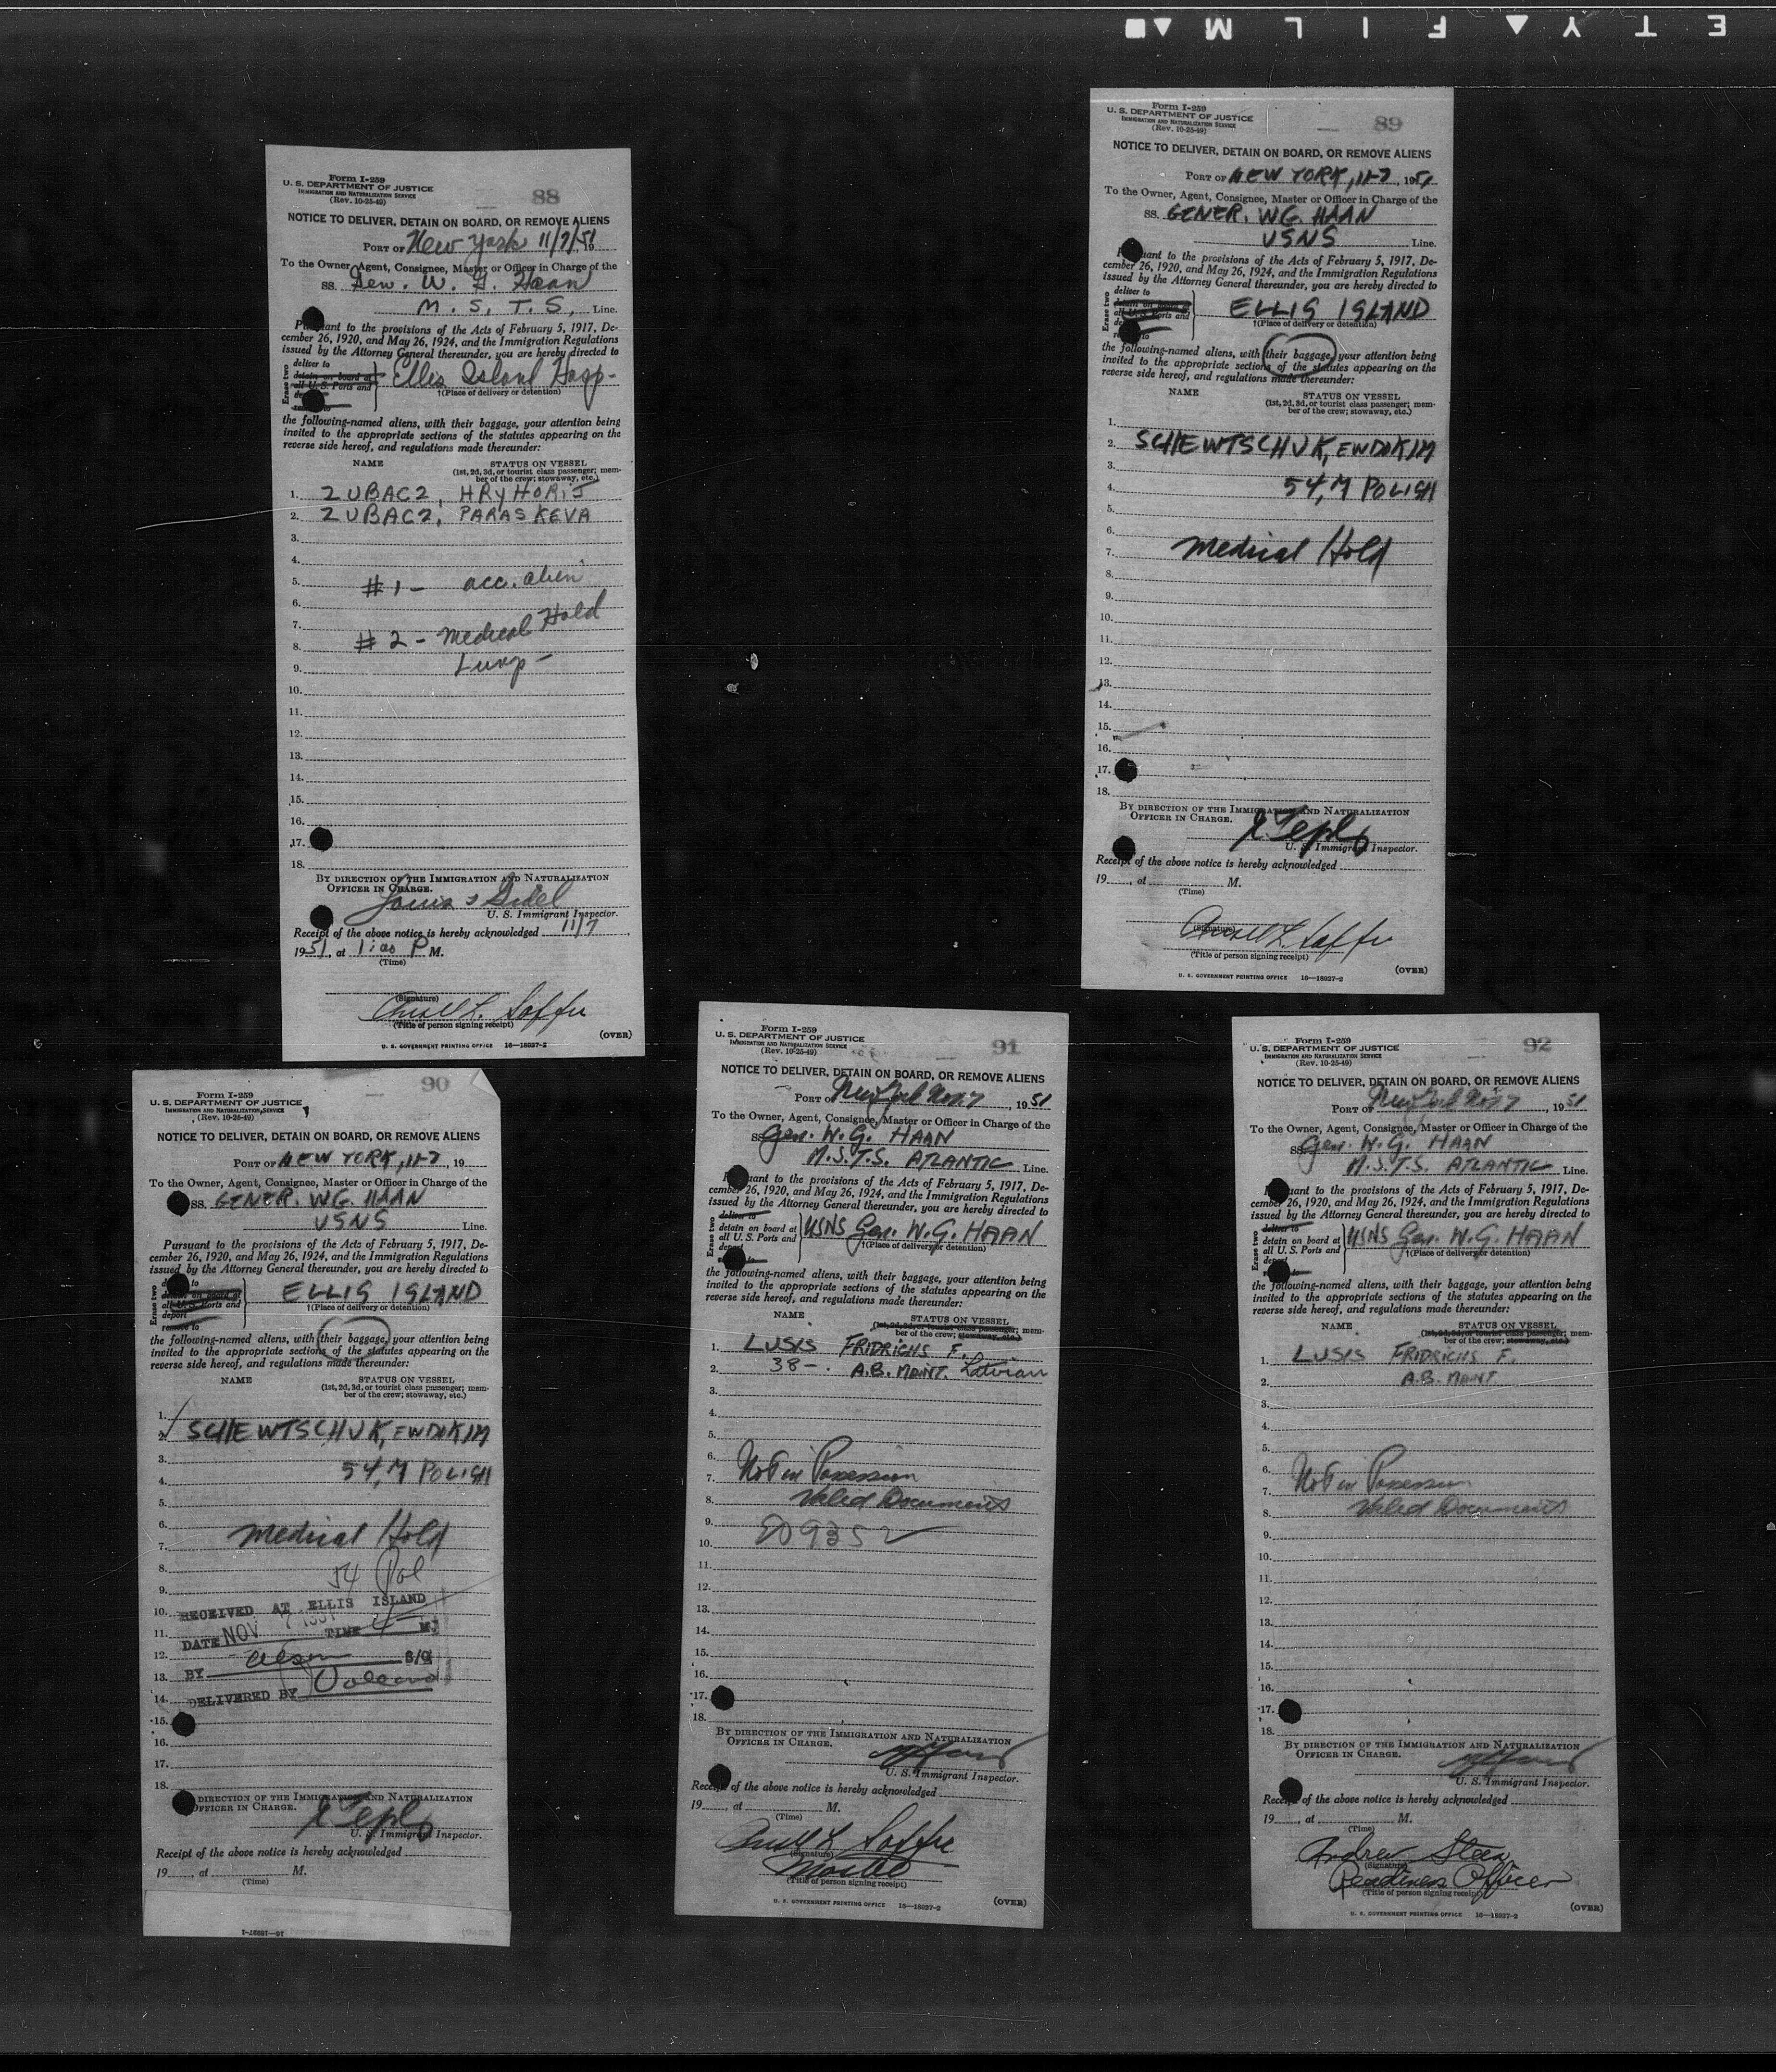 E T Y F I L M
Form I-259
U. S. DEPARTMENT OF JUSTICE
IMMIGRATION AND NATURALIZATION SERVICE
(Rev. 10-25-49)
88
NOTICE TO DELIVER, DETAIN ON BOARD, OR REMOVE ALIENS
PORT OF New York 11/7/51 19
To the Owner, Agent, Consignee, Master or Officer in Charge of the
SS. Gen. W. G. Haan
M. S. T. S. Line.
Pursuant to the provisions of the Acts of February 5, 1917, De-
cember 26, 1920, and May 26, 1924, and the Immigration Regulations
issued by the Attorney General thereunder, you are hereby directed to
Erase two
deliver to
detain on board at
all U. S. Ports and
remove to
Ellis Island Hosp-
†(Place of delivery or detention)
the following-named aliens, with their baggage, your attention being
invited to the appropriate sections of the statutes appearing on the
reverse side hereof, and regulations made thereunder:
NAME STATUS ON VESSEL
(1st, 2d, 3d, or tourist class passenger; mem-
ber of the crew; stowaway, etc.)
1. ZUBACZ, HRYHORIJ
2. ZUBACZ, PARASKEVA
3.
4.
5. #1 - acc. alien
6.
7.
8. #2 - Medical Hold
9. Lung -
10.
11.
12.
13.
14.
15.
16.
17.
18.
BY DIRECTION OF THE IMMIGRATION AND NATURALIZATION
OFFICER IN CHARGE.
U. S. Immigrant Inspector.
Receipt of the above notice is hereby acknowledged 11/7
1951, at 1:00 P M.
(Time)
(Signature)
(Title of person signing receipt)
(OVER)
U. S. GOVERNMENT PRINTING OFFICE 16—18937-2
Form I-259
U. S. DEPARTMENT OF JUSTICE
IMMIGRATION AND NATURALIZATION SERVICE
(Rev. 10-25-49)
89
NOTICE TO DELIVER, DETAIN ON BOARD, OR REMOVE ALIENS
PORT OF NEW YORK, 11-7, 1951
To the Owner, Agent, Consignee, Master or Officer in Charge of the
SS. GENER. W.G. HAAN
USNS Line.
Pursuant to the provisions of the Acts of February 5, 1917, De-
cember 26, 1920, and May 26, 1924, and the Immigration Regulations
issued by the Attorney General thereunder, you are hereby directed to
Erase two
deliver to
detain on board at
all U. S. Ports and
ELLIS ISLAND
†(Place of delivery or detention)
the following-named aliens, with their baggage, your attention being
invited to the appropriate sections of the statutes appearing on the
reverse side hereof, and regulations made thereunder:
NAME STATUS ON VESSEL
(1st, 2d, 3d, or tourist class passenger; mem-
ber of the crew; stowaway, etc.)
1.
2. SCHEWTSCHUK, EWDOKIM
3.
4. 54, M POLISH
5.
6.
7. Medical Hold
8.
9.
10.
11.
12.
13.
14.
15.
16.
17.
18.
BY DIRECTION OF THE IMMIGRATION AND NATURALIZATION
OFFICER IN CHARGE.
U. S. Immigrant Inspector.
Receipt of the above notice is hereby acknowledged
19, at M.
(Time)
(Signature)
(Title of person signing receipt)
(OVER)
U. S. GOVERNMENT PRINTING OFFICE 16—18937-2
90
Form I-259
U. S. DEPARTMENT OF JUSTICE
IMMIGRATION AND NATURALIZATION SERVICE
(Rev. 10-25-49)
NOTICE TO DELIVER, DETAIN ON BOARD, OR REMOVE ALIENS
PORT OF NEW YORK, 11-7, 19
To the Owner, Agent, Consignee, Master or Officer in Charge of the
SS. GENER. W.G. HAAN
USNS Line.
Pursuant to the provisions of the Acts of February 5, 1917, De-
cember 26, 1920, and May 26, 1924, and the Immigration Regulations
issued by the Attorney General thereunder, you are hereby directed to
Erase two
deliver to
detain on board at
all U. S. Ports and
deport
remove to
ELLIS ISLAND
†(Place of delivery or detention)
the following-named aliens, with their baggage, your attention being
invited to the appropriate sections of the statutes appearing on the
reverse side hereof, and regulations made thereunder:
NAME STATUS ON VESSEL
(1st, 2d, 3d, or tourist class passenger; mem-
ber of the crew; stowaway, etc.)
1.
2. SCHEWTSCHUK, EWDOKIM
3.
4. 54, M POLISH
5.
6.
7. Medical Hold
8. 54 Pol
9.
10. RECEIVED AT ELLIS ISLAND
11. DATE NOV 7 1951 TIME
12.
13. BY S/O
14. DELIVERED BY
15.
16.
17.
18.
BY DIRECTION OF THE IMMIGRATION AND NATURALIZATION
OFFICER IN CHARGE.
U. S. Immigrant Inspector.
Receipt of the above notice is hereby acknowledged
19, at M.
(Time)
16—18937-1
Form I-259
U. S. DEPARTMENT OF JUSTICE
IMMIGRATION AND NATURALIZATION SERVICE
(Rev. 10-25-49)
91
NOTICE TO DELIVER, DETAIN ON BOARD, OR REMOVE ALIENS
PORT OF New York Nov. 7, 1951
To the Owner, Agent, Consignee, Master or Officer in Charge of the
SS Gen. W. G. HAAN
M.S.T.S. ATLANTIC Line.
Pursuant to the provisions of the Acts of February 5, 1917, De-
cember 26, 1920, and May 26, 1924, and the Immigration Regulations
issued by the Attorney General thereunder, you are hereby directed to
Erase two
deliver to
detain on board at
all U. S. Ports and
deport
USNS Gen. W. G. HAAN
†(Place of delivery or detention)
the following-named aliens, with their baggage, your attention being
invited to the appropriate sections of the statutes appearing on the
reverse side hereof, and regulations made thereunder:
NAME STATUS ON VESSEL
(1st, 2d, 3d, or tourist class passenger; mem-
ber of the crew; stowaway, etc.)
1. LUSIS FRIDRICHS F.
2. 38 -. A.B. MAINT. Latvian
3.
4.
5.
6.
7. Not in Possession
8. Valid Documents
9.
10. 809352
11.
12.
13.
14.
15.
16.
17.
18.
BY DIRECTION OF THE IMMIGRATION AND NATURALIZATION
OFFICER IN CHARGE.
U. S. Immigrant Inspector.
Receipt of the above notice is hereby acknowledged
19, at M.
(Time)
(Signature)
(Title of person signing receipt)
(OVER)
U. S. GOVERNMENT PRINTING OFFICE 16—18937-2
Form I-259
U. S. DEPARTMENT OF JUSTICE
IMMIGRATION AND NATURALIZATION SERVICE
(Rev. 10-25-49)
92
NOTICE TO DELIVER, DETAIN ON BOARD, OR REMOVE ALIENS
PORT OF New York Nov. 7, 1951
To the Owner, Agent, Consignee, Master or Officer in Charge of the
SS. Gen. W. G. HAAN
M.S.T.S. ATLANTIC Line.
Pursuant to the provisions of the Acts of February 5, 1917, De-
cember 26, 1920, and May 26, 1924, and the Immigration Regulations
issued by the Attorney General thereunder, you are hereby directed to
Erase two
deliver to
detain on board at
all U. S. Ports and
deport
USNS Gen. W. G. HAAN
†(Place of delivery or detention)
the following-named aliens, with their baggage, your attention being
invited to the appropriate sections of the statutes appearing on the
reverse side hereof, and regulations made thereunder:
NAME STATUS ON VESSEL
(1st, 2d, 3d, or tourist class passenger; mem-
ber of the crew; stowaway, etc.)
1. LUSIS FRIDRICHS F.
2. A.B. MAINT.
3.
4.
5.
6.
7. Not in Possession
8. Valid Documents
9.
10.
11.
12.
13.
14.
15.
16.
17.
18.
BY DIRECTION OF THE IMMIGRATION AND NATURALIZATION
OFFICER IN CHARGE.
U. S. Immigrant Inspector.
Receipt of the above notice is hereby acknowledged
19, at M.
(Time)
Andrew Steen
(Signature)
Readiness Officer
(Title of person signing receipt)
(OVER)
U. S. GOVERNMENT PRINTING OFFICE 16—18937-2